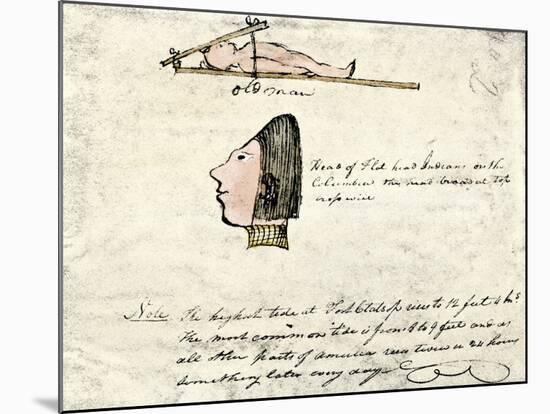 old man
Head of Fld head Indians on the
Columbia the head broad at top
crosswise
Note The highest tide at Fort Clatsop rises to 12 feet 4 Ins
The most common tide is from 8 to 9 feet and as
all other parts of america rises twice in 24 hours
something later every day